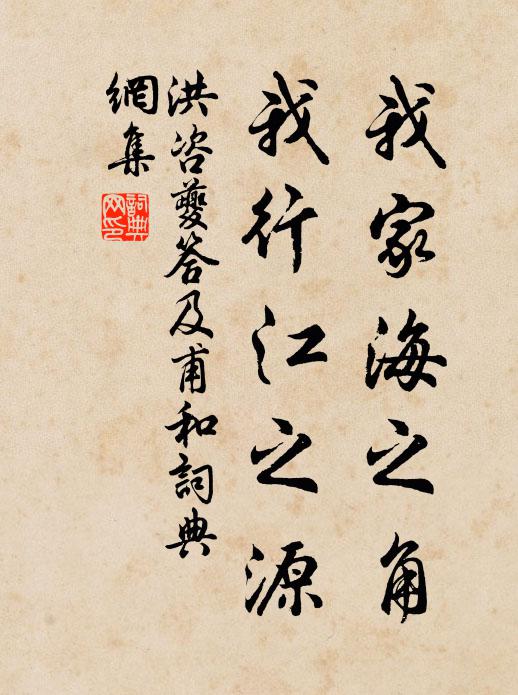 我家海之角
我行江之源
洪咨夔答及甫和詞典
網集
詞典
网印